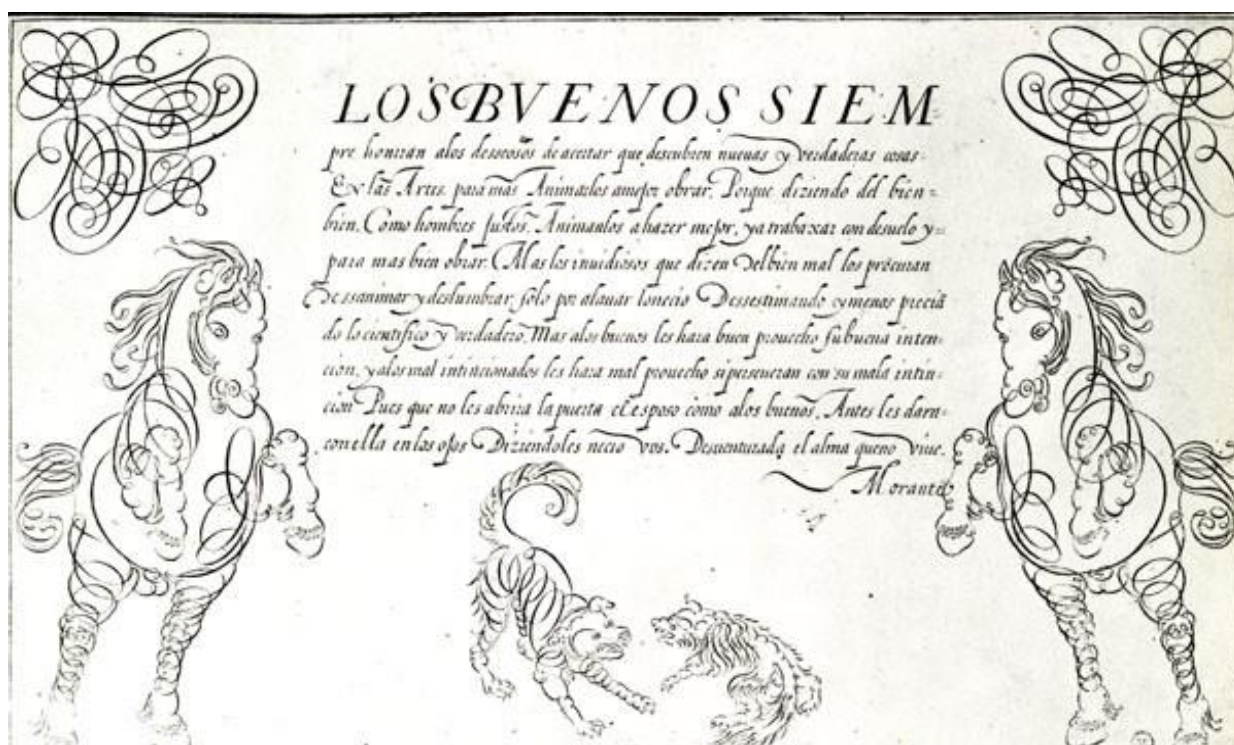 LOS BVENOS SIEM-
pre honrran alos desseosos de acertar que descubren nueuas y verdaderas cosas.
En las Artes. para mas Animarlos amejor obrar. Porque diziendo del bien-
bien. Como hombres justos. Animanlos a hazer mejor, ya trabaxar con desuelo y-
para mas bien obrar. Mas los inuidiosos que dizen del bien mal los procuran
Dessanimar y deslumbrar, solo por alauar lo necio Dessestimando y menos preciā
do lo cientifico y verdadero. Mas alos buenos les hara buen prouecho su buena inten-
cion, y alos mal intincionados les hara mal prouecho si perseueran con su mala intin-
cion Pues que no les abrira la puerta el esposo como alos buenos, Antes les dara-
con ella en los ojos Diziendoles necio vos. Desuenturada el alma que no viue.
Morante